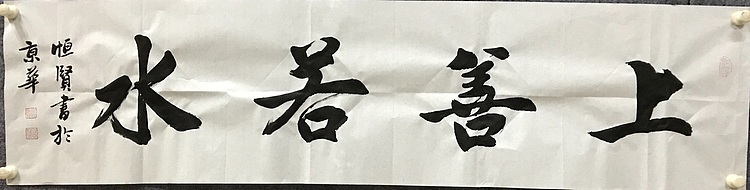 上善若水
恒賢書於
京華